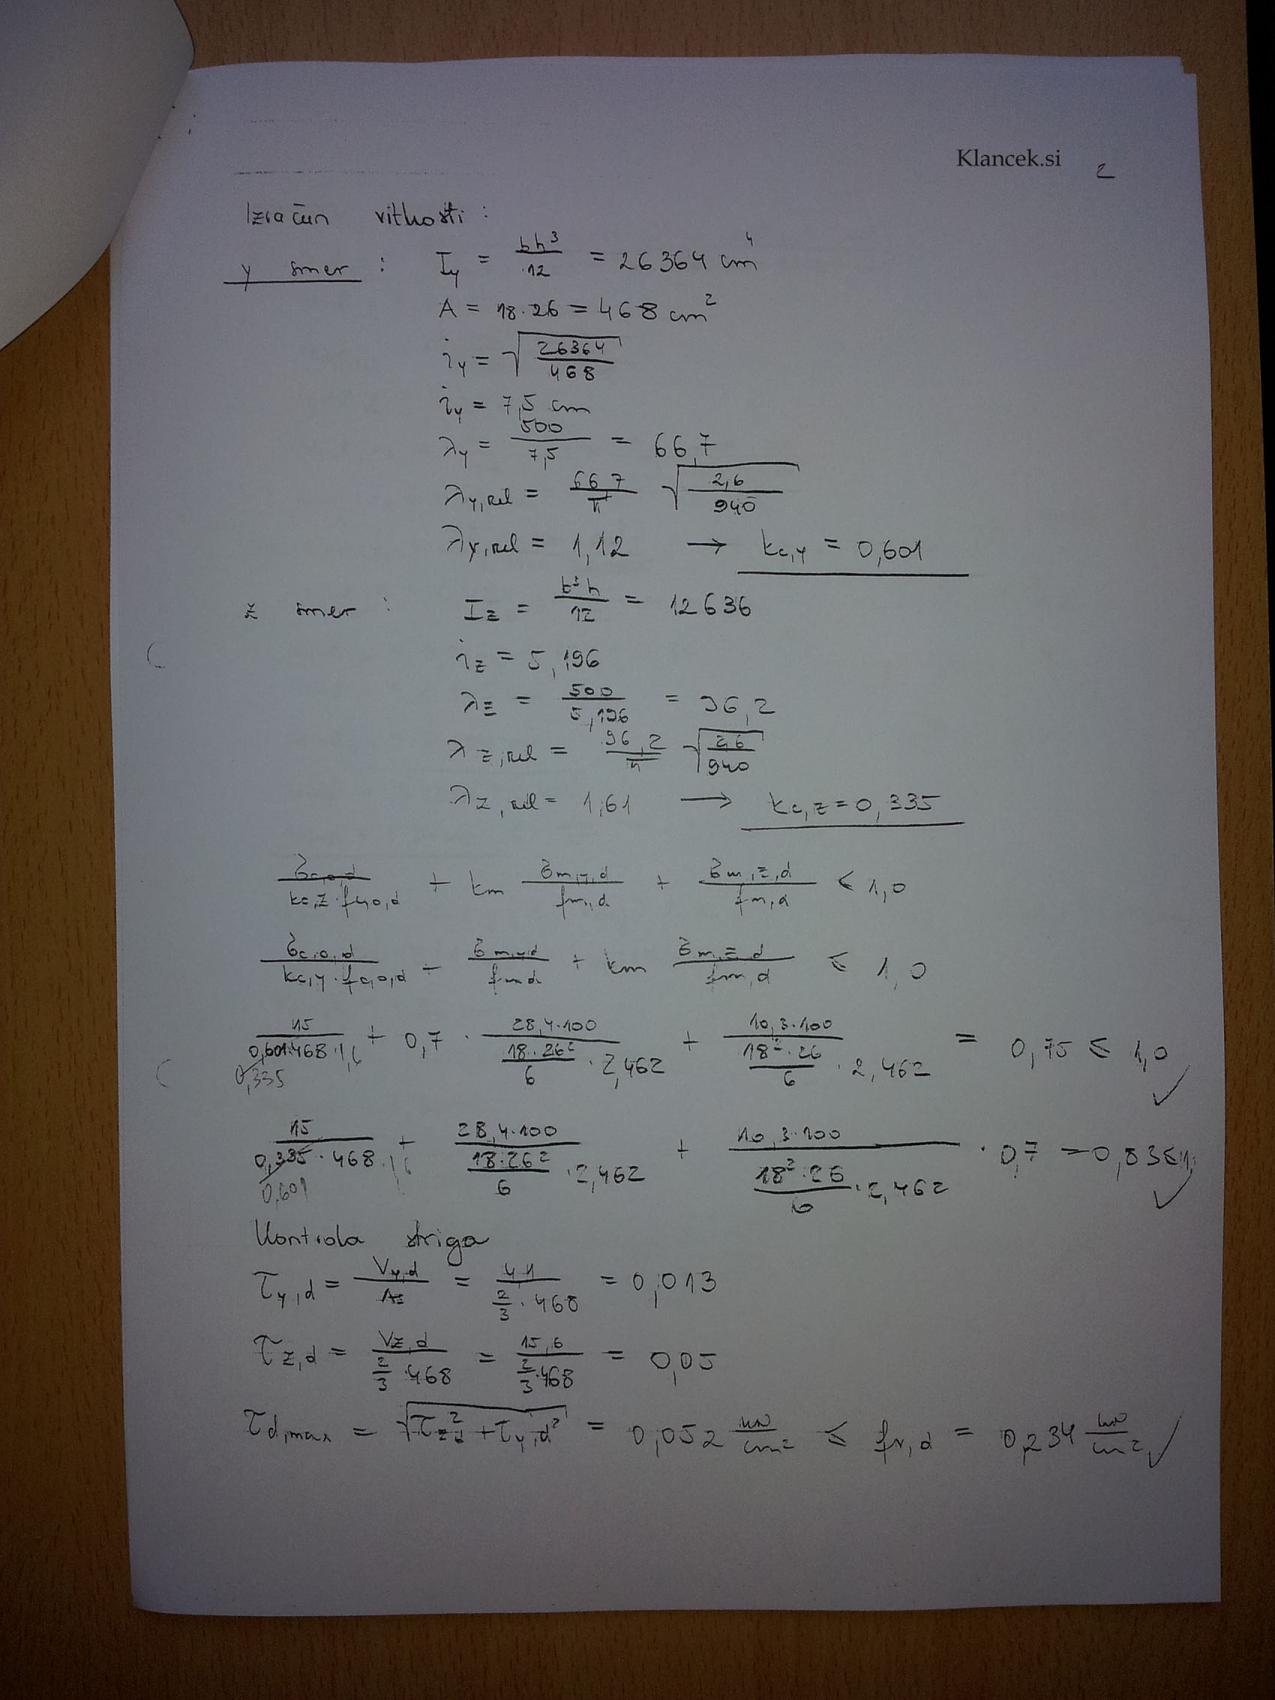 Klancek.si 2
Izračun vitkosti:
y smer : I_y = bh³/12 = 26364 cm⁴
A = 18·26 = 468 cm²
i_y = √(26364/468)
i_y = 7,5 cm
λ_y = 500/7,5 = 66,7
λ_y,rel = 66,7/π √(2,6/940)
λ_y,rel = 1,12 → k_c,y = 0,601
z smer : I_z = b³h/12 = 12636
i_z = 5,196
λ_z = 500/5,196 = 96,2
λ_z,rel = 96,2/π √(2,6/940)
λ_z,rel = 1,61 → k_c,z = 0,335
σ_c,o,d/(k_c,z · f_c,o,d) + k_m σ_m,y,d/f_m,d + σ_m,z,d/f_m,d ≤ 1,0
σ_c,o,d/(k_c,y · f_c,o,d) + σ_m,y,d/f_m,d + k_m σ_m,z,d/f_m,d ≤ 1,0
15/(0,601·468·1,6) + 0,7 · 28,4·100/(18·26²/6 · 2,462) + 10,3·100/(18²·26/6 · 2,462) = 0,75 ≤ 1,0 ✓
0,335
15/(0,335·468·1,6) + 28,4·100/(18·26²/6 · 2,462) + 10,3·100/(18²·26/6 · 2,462) · 0,7 = 0,838 ≤ 1, ✓
0,601
Kontrola striga
τ_y,d = V_y,d/A_s = 4,1/(2/3 · 468) = 0,013
τ_z,d = V_z,d/(2/3 · 468) = 15,6/(2/3 · 468) = 0,05
τ_d,max = √(τ_z,d² + τ_y,d²) = 0,052 kN/cm² ≤ f_v,d = 0,234 kN/cm² ✓